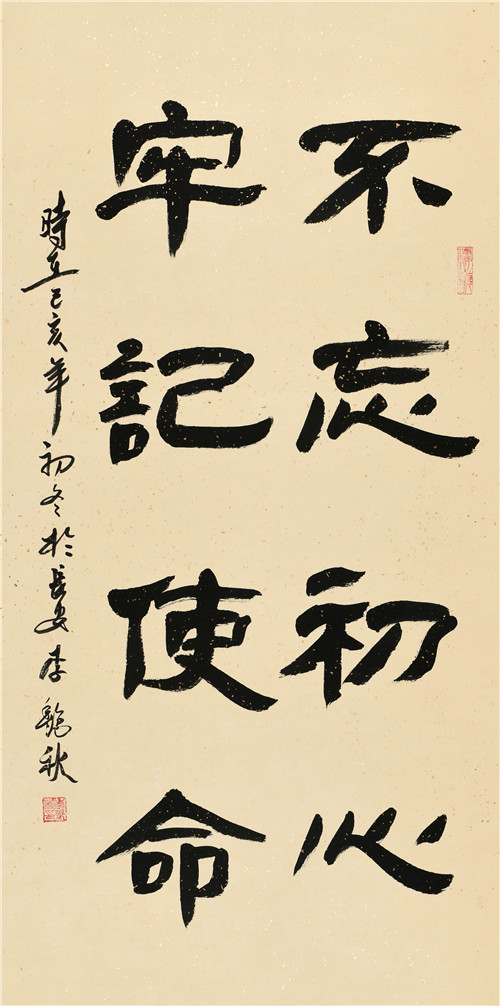 不忘初心
牢記使命
時在己亥年初冬於長安李鶴秋